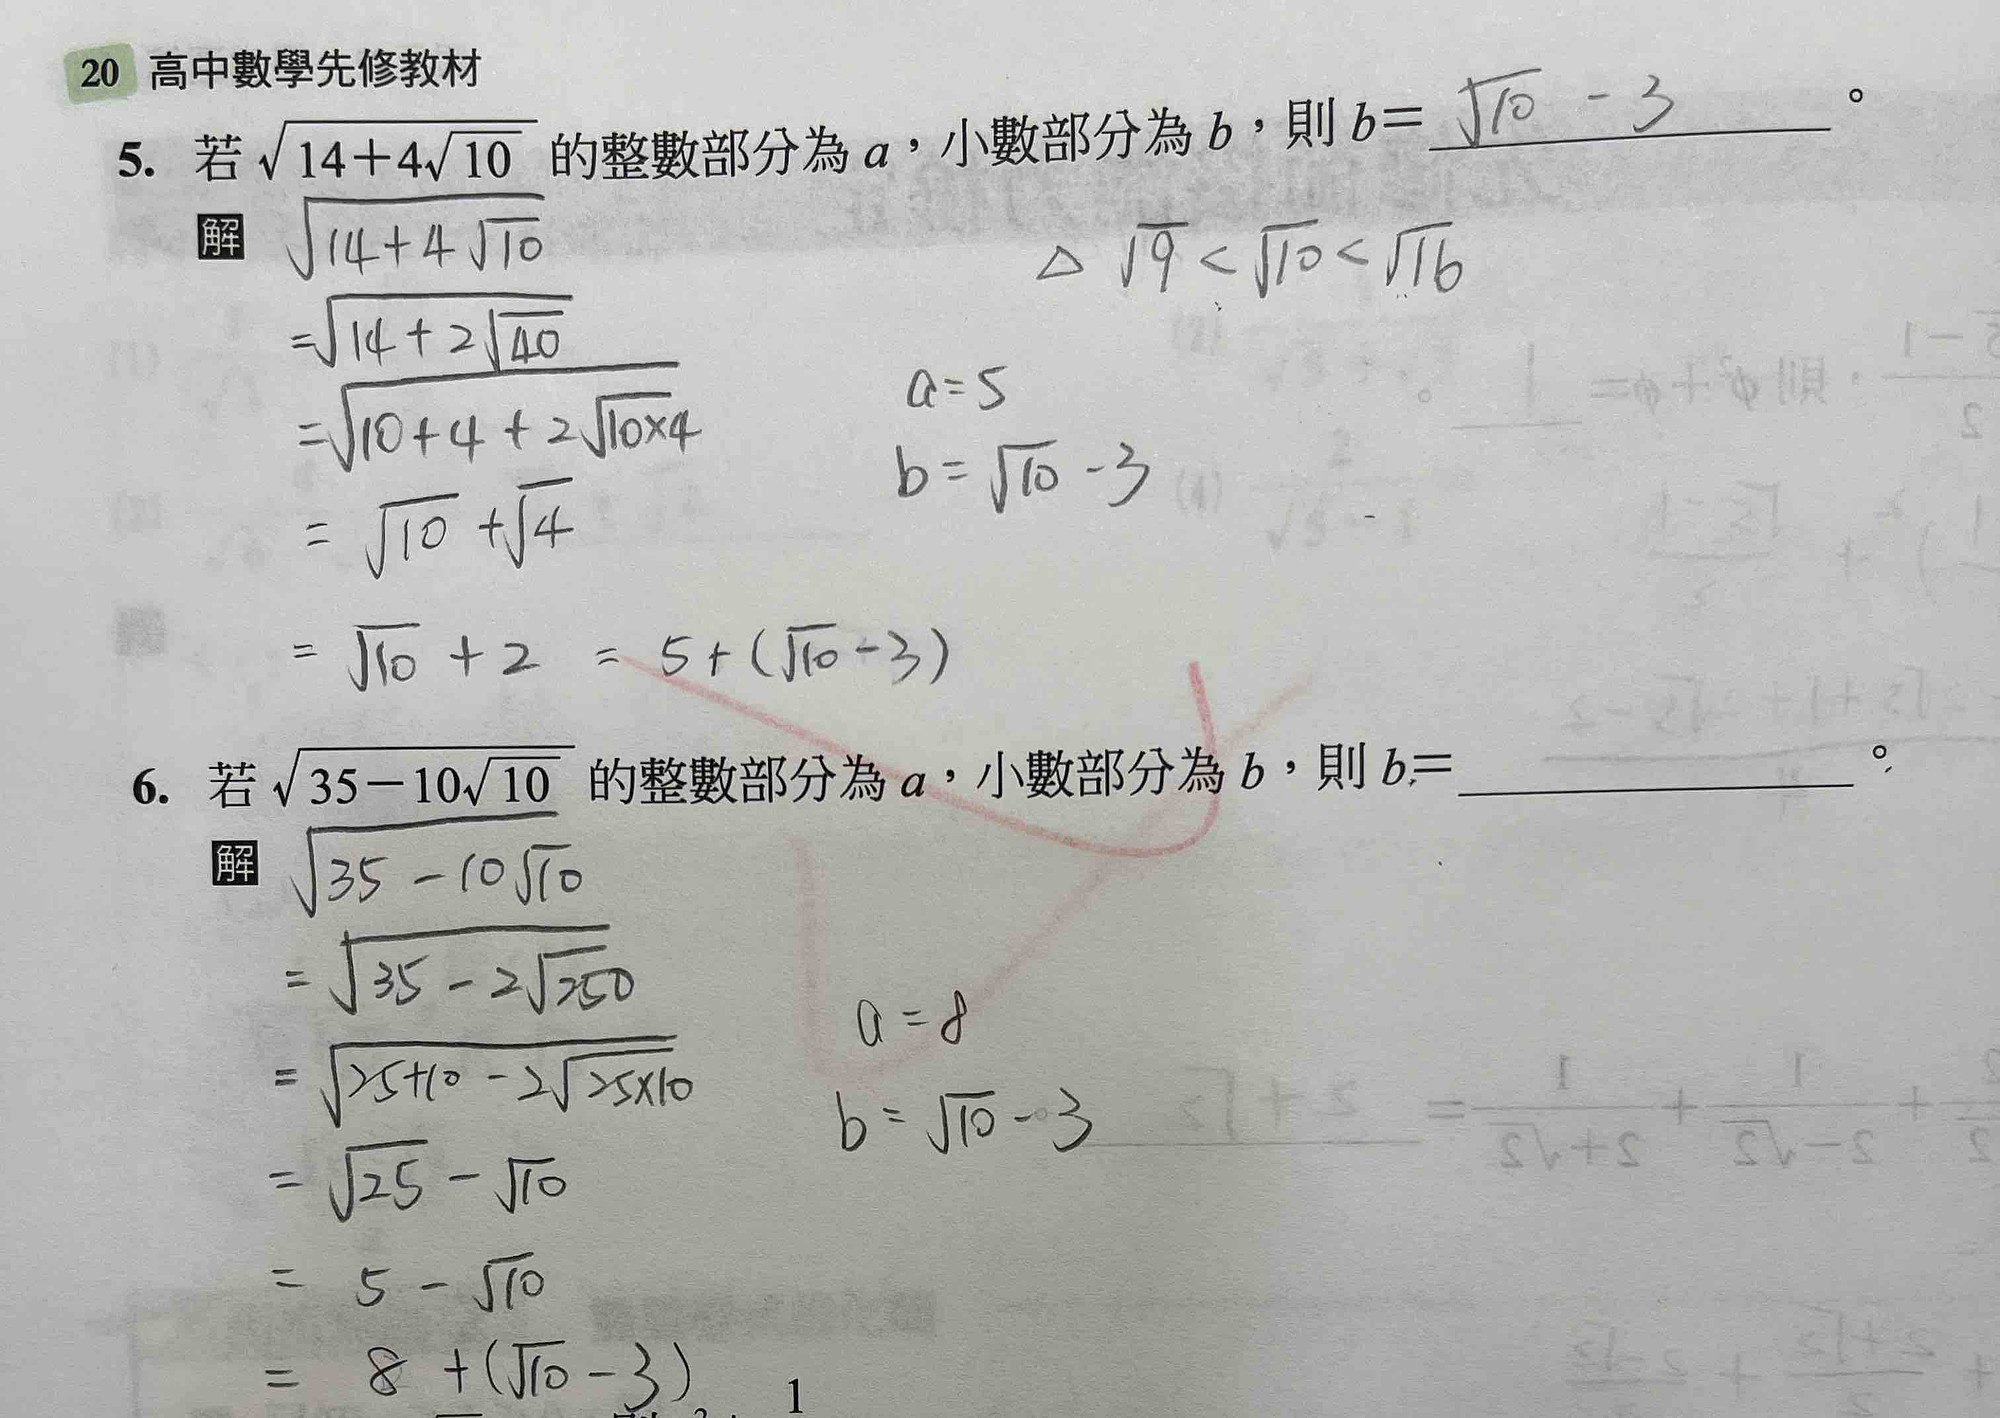 20 高中數學先修教材
5. 若 √(14+4√10) 的整數部分為 a，小數部分為 b，則 b= √10 - 3 。
解 √(14+4√10)
△ √9 < √10 < √16
= √(14+2√40)
a=5
= √(10+4+2√(10×4))
b= √10 -3
= √10 +√4
= √10 + 2 = 5+(√10-3)
6. 若 √(35-10√10) 的整數部分為 a，小數部分為 b，則 b= 。
解 √(35-10√10)
= √(35-2√250)
a=8
= √(25+10-2√(25×10))
b= √10-3
= √25 - √10
= 5 - √10
= 8 +(√10-3)
1